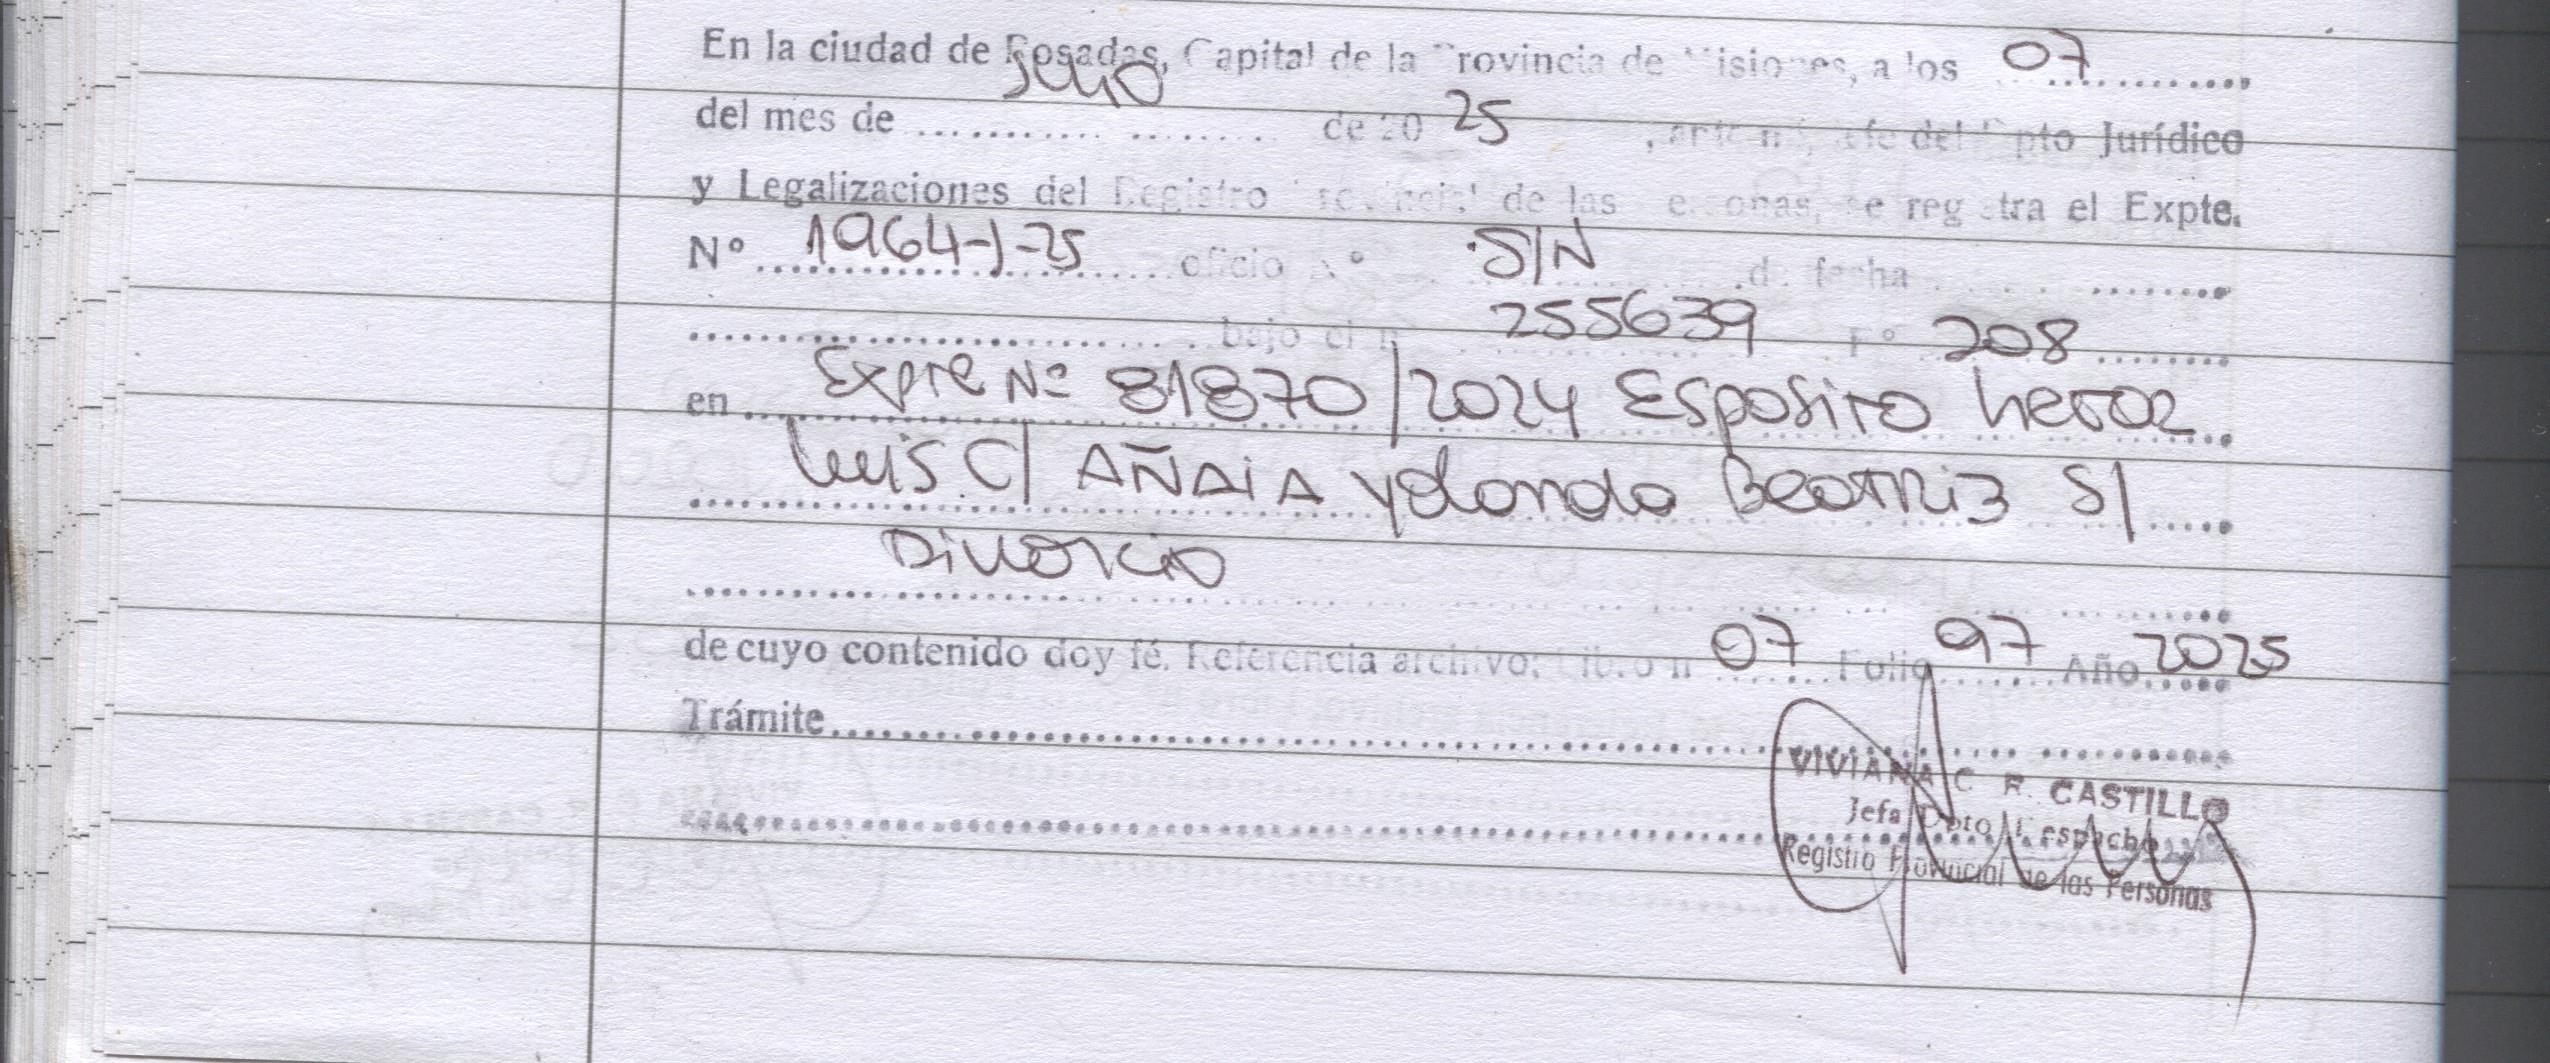 En la ciudad de Posadas, Capital de la Provincia de Misiones, a los 07
del mes de Julio de 2025, ante mí, Jefe del Dpto Jurídico
y Legalizaciones del Registro Provincial de las Personas, se registra el Expte.
Nº 1964-J-25 oficio Nº S/N de fecha
bajo el nº 255639 Fº 208
en Expte Nº 81870/2024 Esposito
Luis C/ AÑAIA Yolanda Beatriz S/
Divorcio
de cuyo contenido doy fé. Referencia archivo: Libro nº 07 Folio 97 Año 2025
Trámite
VIVIANA C R. CASTILLO
Jefa Dpto Despacho
Registro Provincial de las Personas